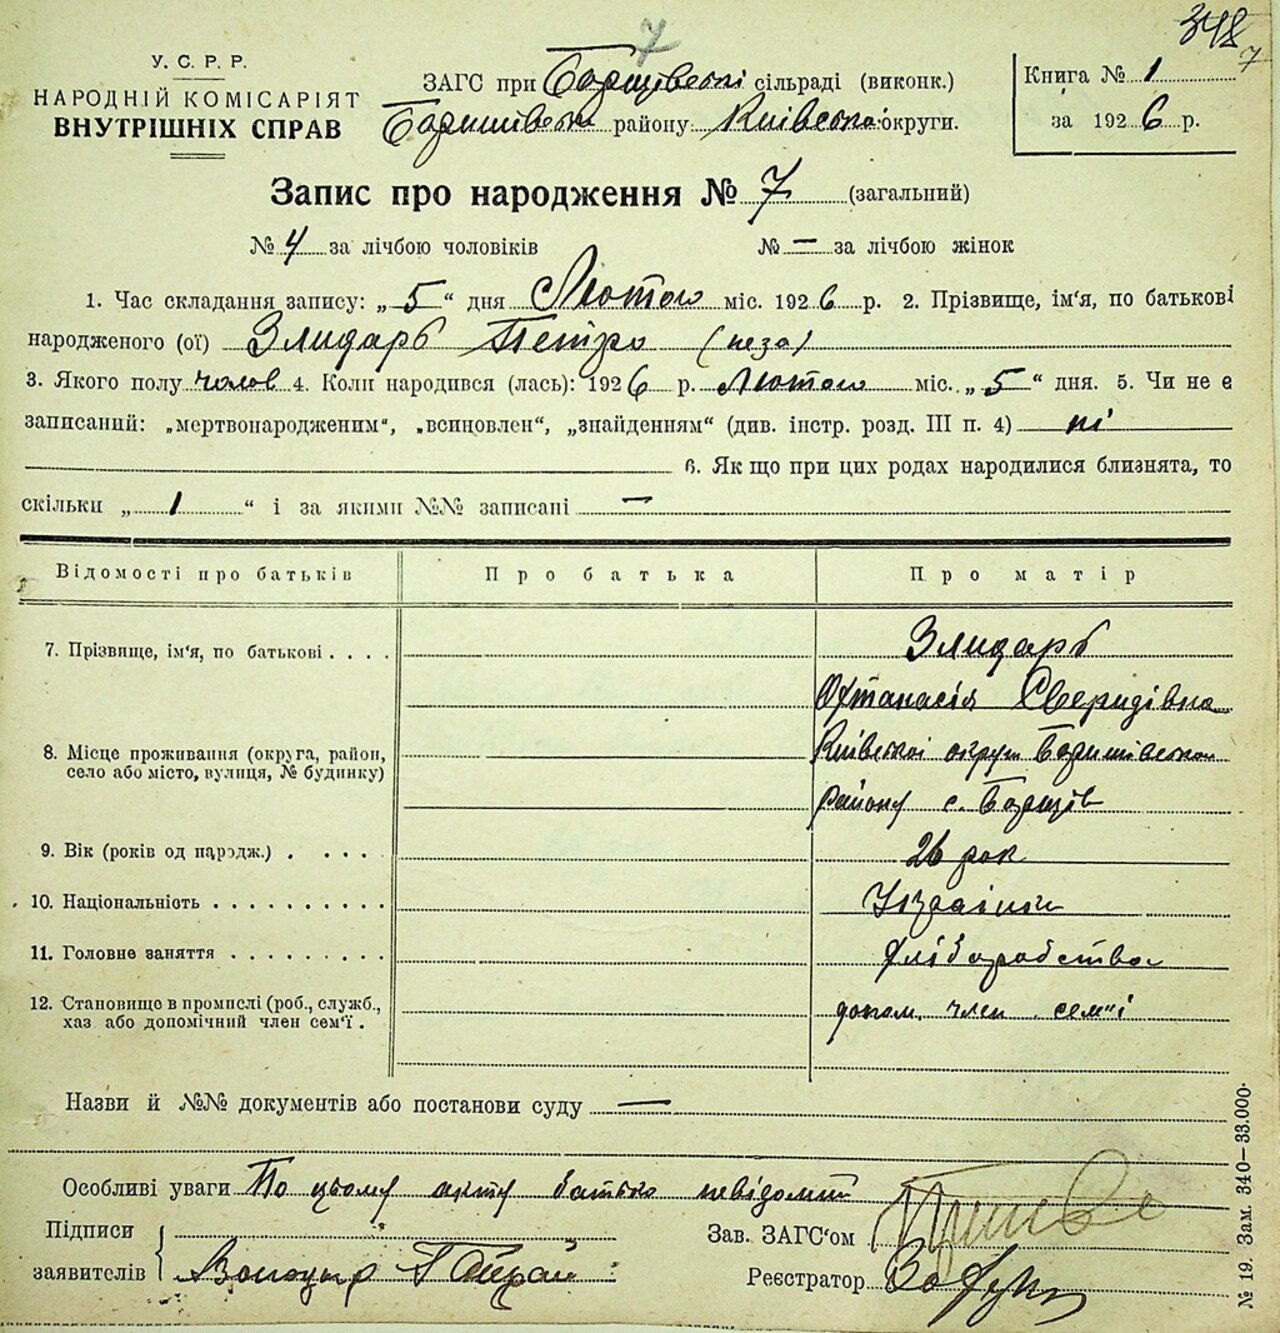 348
7
7
У. С. Р. Р.
НАРОДНІЙ КОМІСАРІЯТ
ВНУТРІШНІХ СПРАВ
ЗАГС при Борщівські сільраді (виконк.)
Баришівськ району Київської округи.
Книга № 1
за 1926 р.
Запис про народження № 7 (загальний)
№ 4 за лічбою чоловіків № — за лічбою жінок
1. Час складання запису: „ 5 “ дня Лютого міс. 1926 р. 2. Прізвище, ім'я, по батькові
народженого (ої) Злидарь Петро (неза)
3. Якого полу чолов 4. Коли народився (лась): 1926 р. Лютого міс. „ 5 “ дня. 5. Чи не є
записаний: „мертвонародженим“, „всиновлен“, „знайденням“ (див. інстр. розд. III п. 4) ні
6. Як що при цих родах народилися близнята, то
скільки „ 1 “ і за якими №№ записані —
Відомості про батьків Про батька Про матір
7. Прізвище, ім'я, по батькові . . . . Злидарь
Охтанасія Свиридівна
8. Місце проживання (округа, район, село або місто, вулиця, № будинку) Київської округи Баришівського
району с. Борщів
9. Вік (років од народж.) . . . . 26 рок
10. Національність . . . . . . . . . . Українка
11. Головне заняття . . . . . . . . . хліборобство
12. Становище в промислі (роб., служб., допом. член сем"ї
хаз або допомічний член сем'ї .
Назви й №№ документів або постанови суду —
Особливі уваги По цьому акту батько невідомий
Підписи
заявителів
Зав. ЗАГС'ом
Реєстратор
№ 19. Зам. 340—33.000.